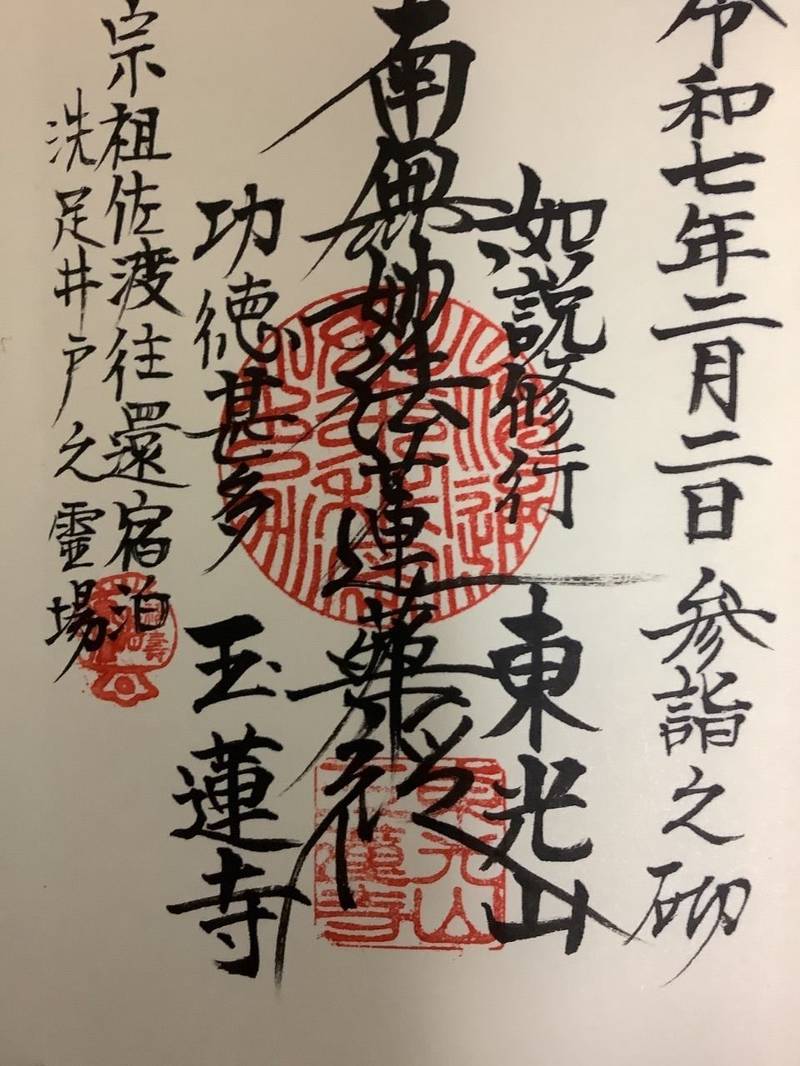 令和七年二月二日参詣之砌
如説修行
東光山
南無妙法蓮華経
功徳甚多
玉蓮寺
宗祖佐渡往還宿泊
洗足井戸之霊場
東光山
玉蓮寺